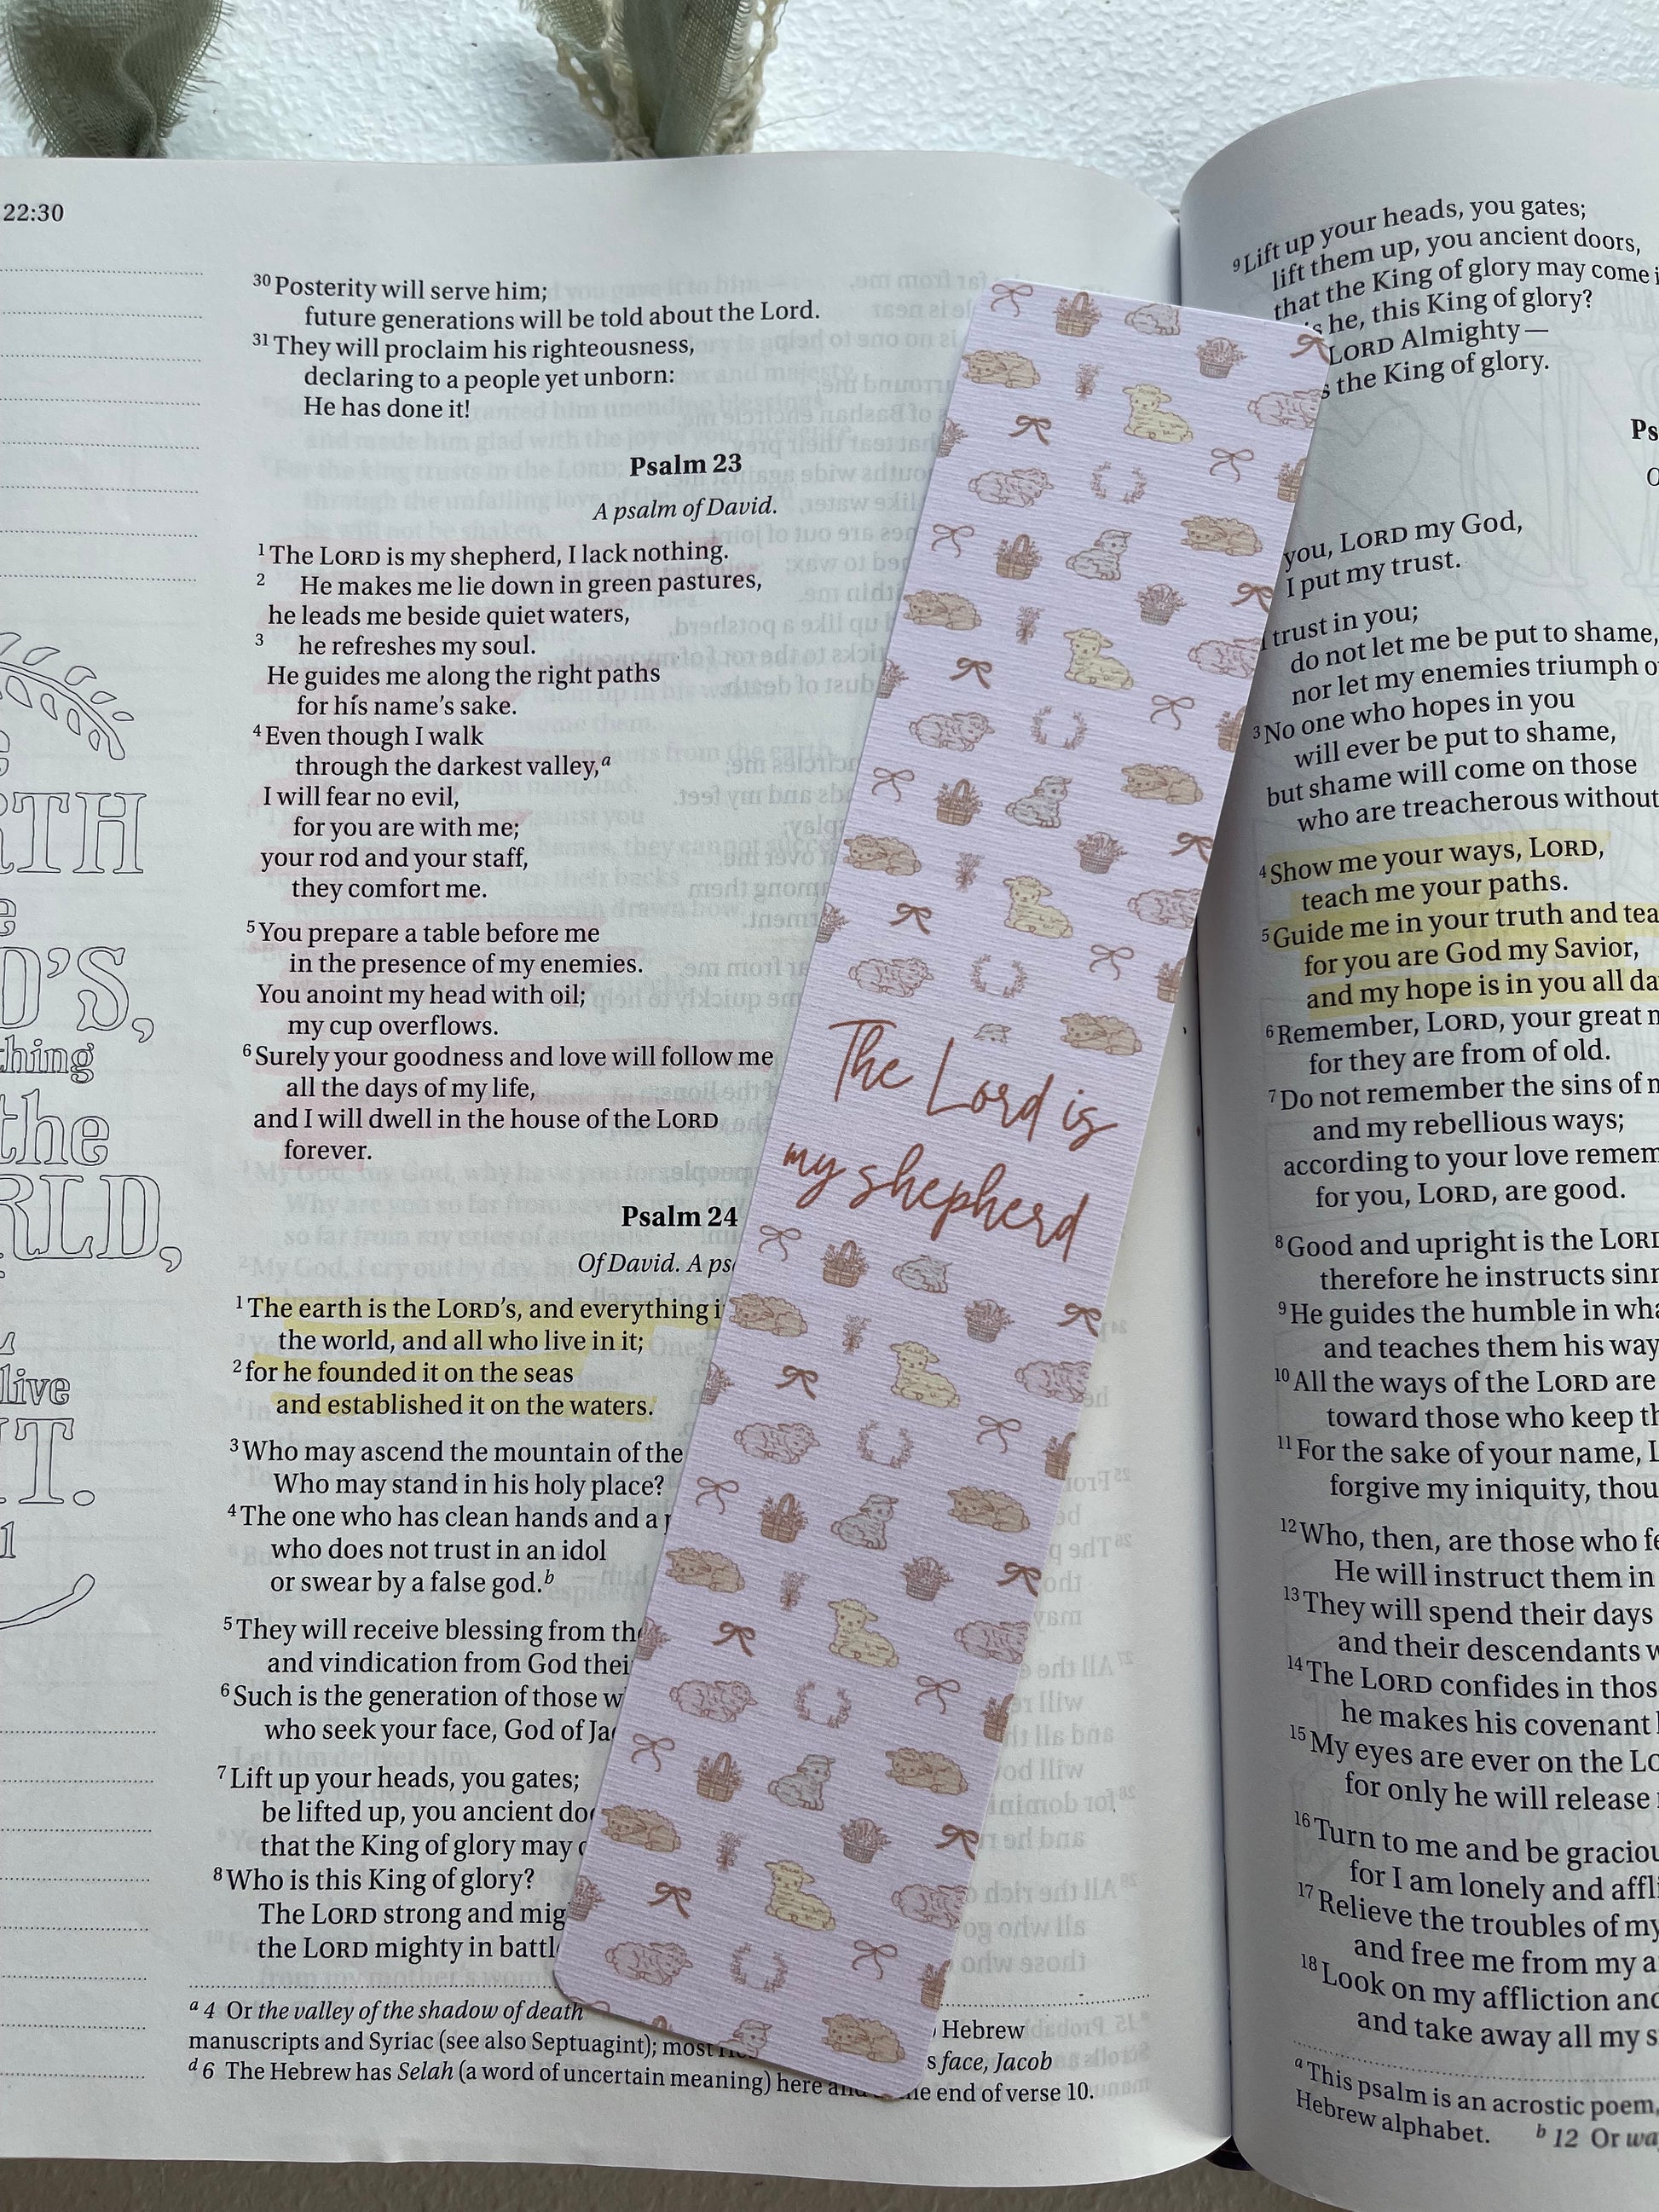 22:30
30 Posterity will serve him;
future generations will be told about the Lord.
31 They will proclaim his righteousness,
declaring to a people yet unborn:
He has done it!
Psalm 23
A psalm of David.
1 The LORD is my shepherd, I lack nothing.
2 He makes me lie down in green pastures,
he leads me beside quiet waters,
3 he refreshes my soul.
He guides me along the right paths
for his name's sake.
4 Even though I walk
through the darkest valley,a
I will fear no evil,
for you are with me;
your rod and your staff,
they comfort me.
5 You prepare a table before me
in the presence of my enemies.
You anoint my head with oil;
my cup overflows.
6 Surely your goodness and love will follow me
all the days of my life,
and I will dwell in the house of the LORD
forever.
Psalm 24
Of David. A
1 The earth is the LORD's, and everything
the world, and all who live in it;
2 for he founded it on the seas
and established it on the waters.
3 Who may ascend the mountain of the
Who may stand in his holy place?
4 The one who has clean hands and a
who does not trust in an idol
or swear by a false god.b
5 They will receive blessing from
and vindication from God
6 Such is the generation of those
who seek your face, God of
7 Lift up your heads, you gates;
be lifted up, you ancient
that the King of glory may
8 Who is this King of glory?
The LORD strong and
the LORD mighty in
a 4 Or the valley of the shadow of death
Hebrew
manuscripts and Syriac (see also Septuagint); most
face, Jacob
d 6 The Hebrew has Selah (a word of uncertain meaning) here end of verse 10.
the
live
The Lord is
my shepherd
9 Lift up your heads, you gates;
lift them up, you ancient doors,
that the King of glory may come
he, this King of glory?
LORD Almighty—
the King of glory.
you, LORD my God,
I put my trust.
I trust in you;
do not let me be put to shame,
nor let my enemies triumph
3 No one who hopes in you
will ever be put to shame,
but shame will come on those
who are treacherous without
4 Show me your ways, LORD,
teach me your paths.
5 Guide me in your truth and
for you are God my Savior,
and my hope is in you all
6 Remember, LORD, your great
for they are from of old.
7 Do not remember the sins of
and my rebellious ways;
according to your love
for you, LORD, are good.
8 Good and upright is the LORD
therefore he instructs
9 He guides the humble in
and teaches them his
10 All the ways of the LORD are
toward those who keep
11 For the sake of your name,
forgive my iniquity,
12 Who, then, are those who
He will instruct them in
13 They will spend their days
and their descendants
14 The LORD confides in
he makes his covenant
15 My eyes are ever on the
for only he will release
16 Turn to me and be
for I am lonely and
17 Relieve the troubles of
and free me from my
18 Look on my affliction
and take away all my
a This psalm is an acrostic poem,
Hebrew alphabet. b 12 Or